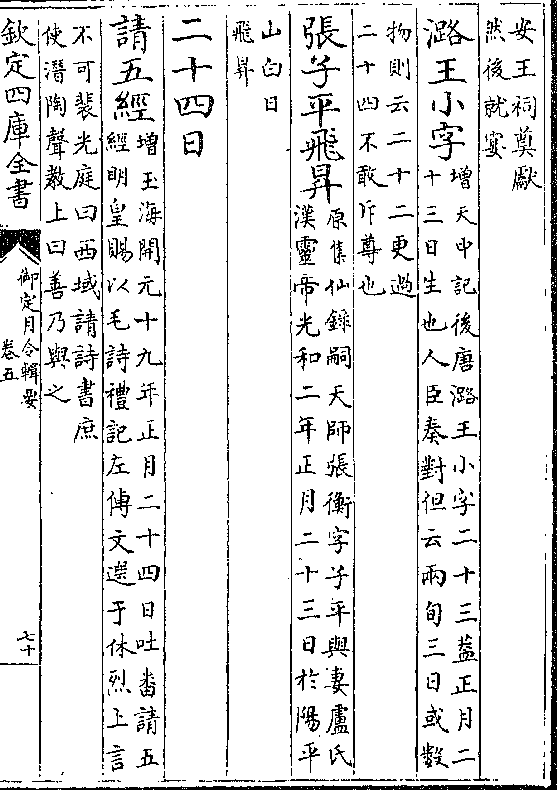 安王祠奠獻
然後就宴
潞王小字增天中記後唐潞王小字二十三葢正月二
十三日生也人臣奏對但云兩旬三日或數
物則云二十二更過
二十四不敢斥尊也
張子平飛昇原集仙錄嗣天師張衡字子平與妻盧氏
漢靈帝光和二年正月二十三日於陽平
山白日
飛昇
二十四日
請五經增玉海開元十九年正月二十四日吐蕃請五
經明皇賜以毛詩禮記左傳文選于休烈上言
不可裴光庭曰西域請詩書庶
使漸陶聲教上曰善乃與之
欽定四庫全書
御定月令輯要
卷五
七十